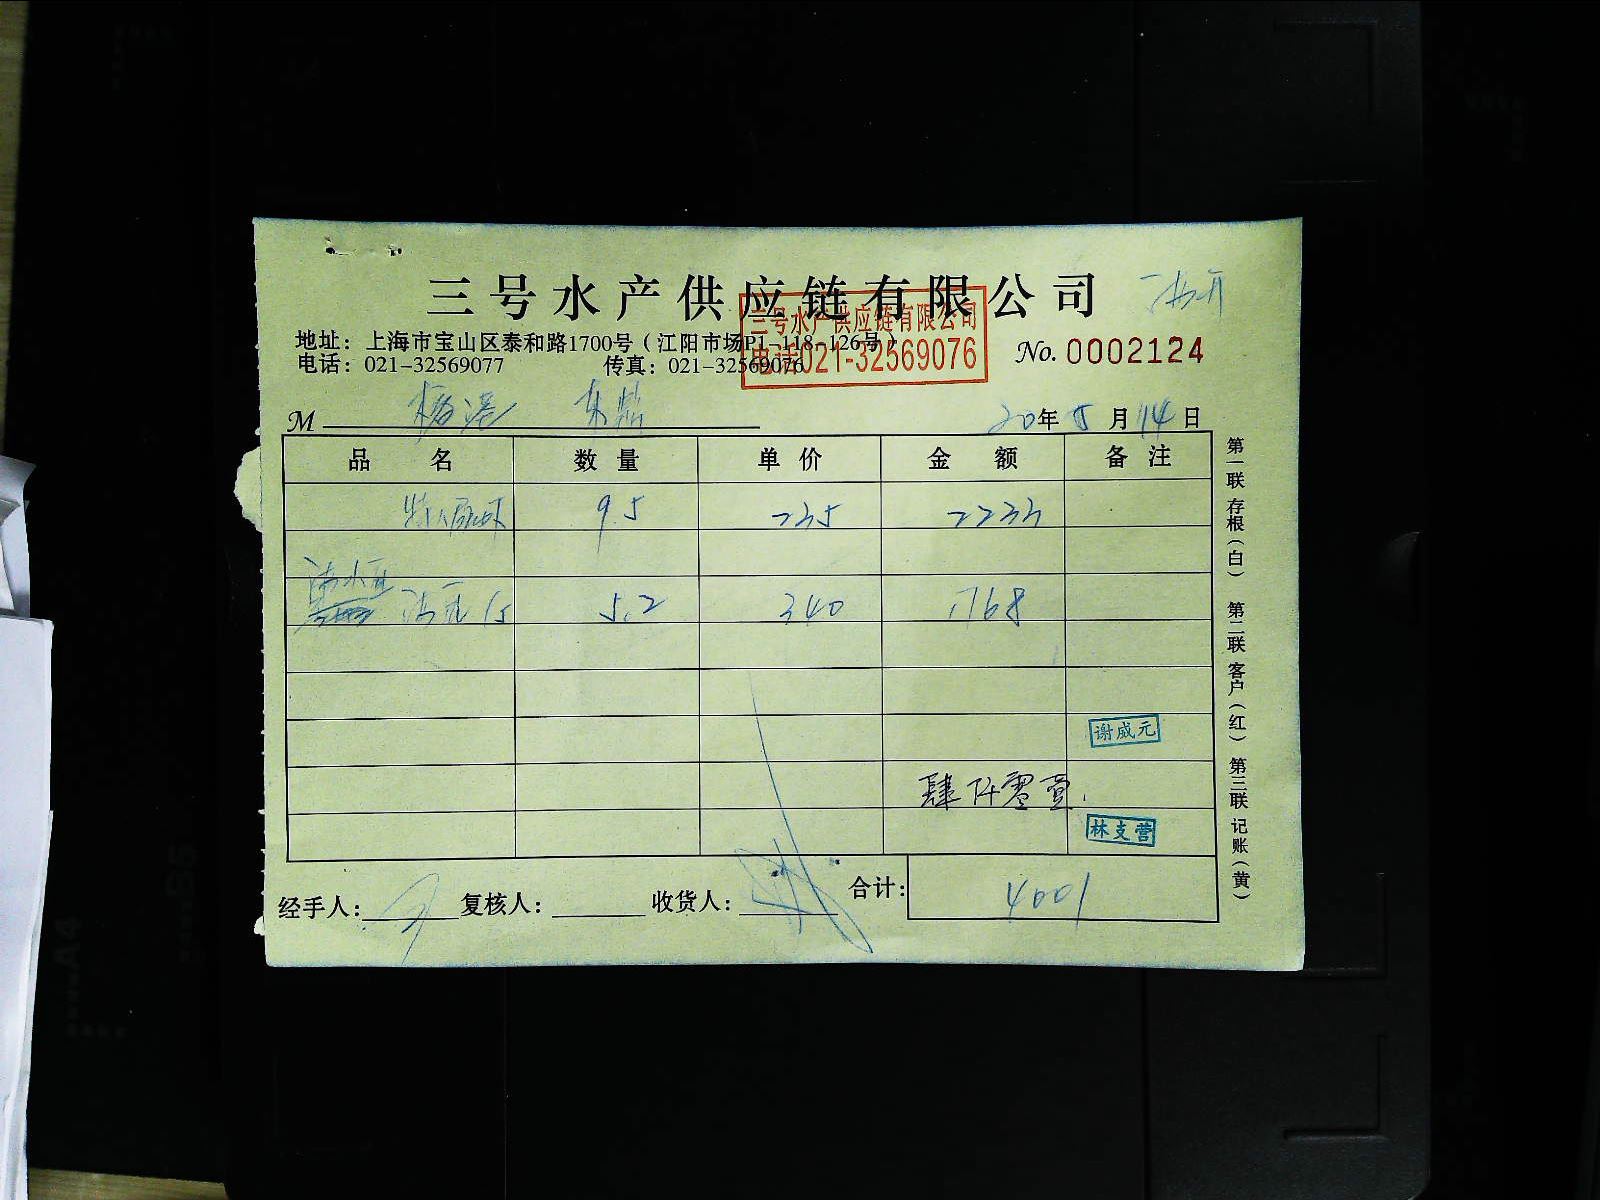 三号水产供应链有限公司
三号水产供应链有限公司
电话021-32569076
地址：上海市宝山区泰和路1700号（江阳市场P1-118-126号）
电话：021-32569077 传真：021-32569076
No. 0002124
M
20年5月14日
品名 数量 单价 金额 备注
95 235 2233
5.2 340 1768
谢威元
肆仟零壹
林支营
经手人： 复核人： 收货人： 合计：4001
第一联 存根（白） 第二联 客户（红） 第三联 记账（黄）